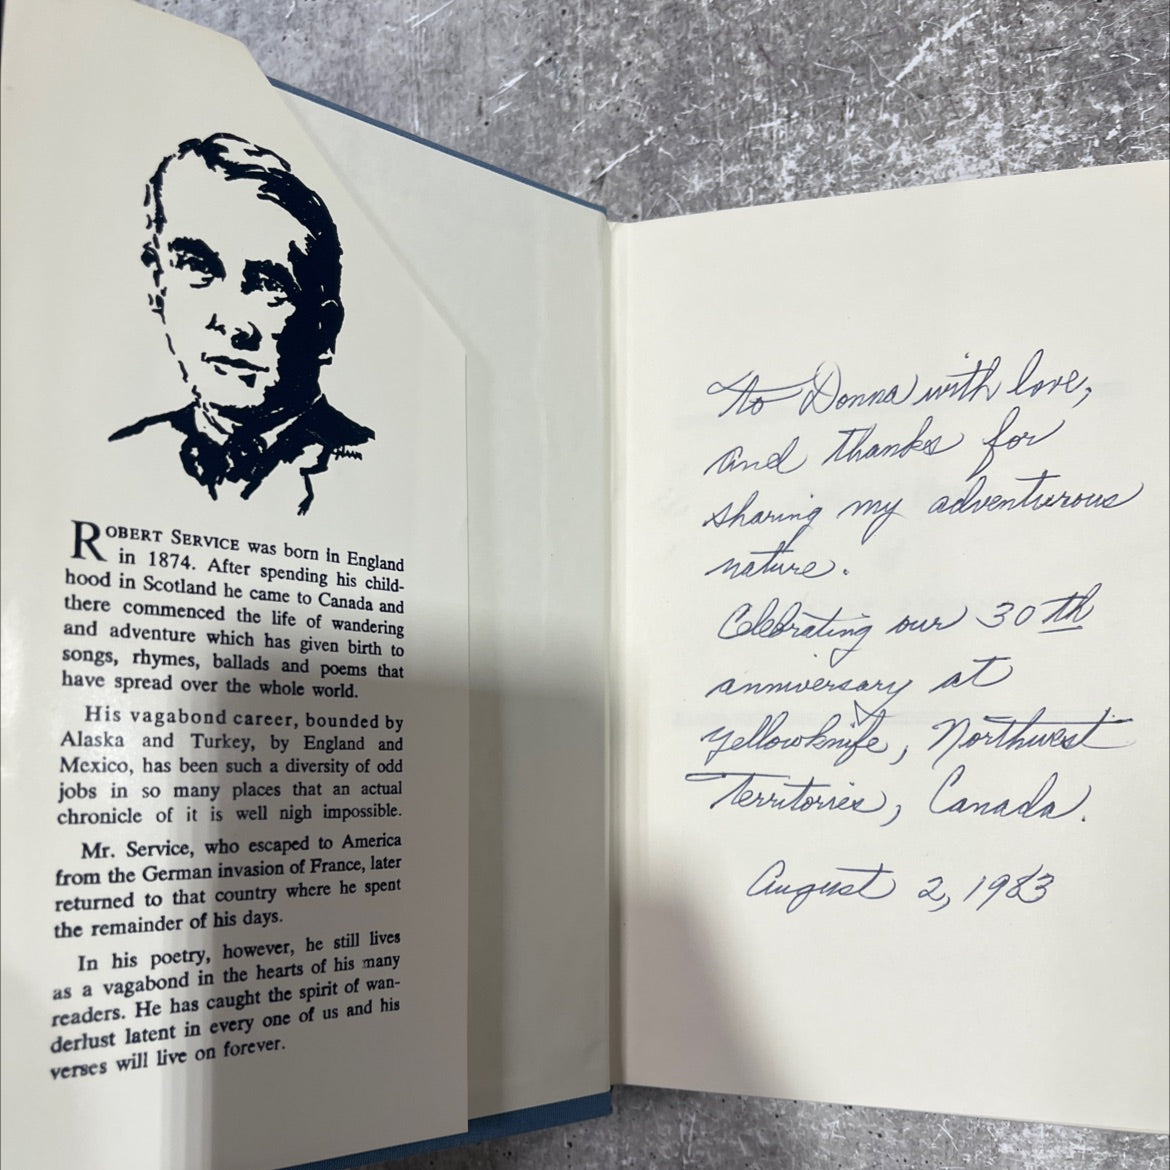 ROBERT SERVICE was born in England
in 1874. After spending his child-
hood in Scotland he came to Canada and
there commenced the life of wandering
and adventure which has given birth to
songs, rhymes, ballads and poems that
have spread over the whole world.
His vagabond career, bounded by
Alaska and Turkey, by England and
Mexico, has been such a diversity of odd
jobs in so many places that an actual
chronicle of it is well nigh impossible.
Mr. Service, who escaped to America
from the German invasion of France, later
returned to that country where he spent
the remainder of his days.
In his poetry, however, he still lives
as a vagabond in the hearts of his many
readers. He has caught the spirit of wan-
derlust latent in every one of us and his
verses will live on forever.
To Donna with love,
and thanks for
sharing my adventurous
nature.
Celebrating our 30th
anniversary at
Yellowknife, Northwest
Territories, Canada.
August 2, 1983